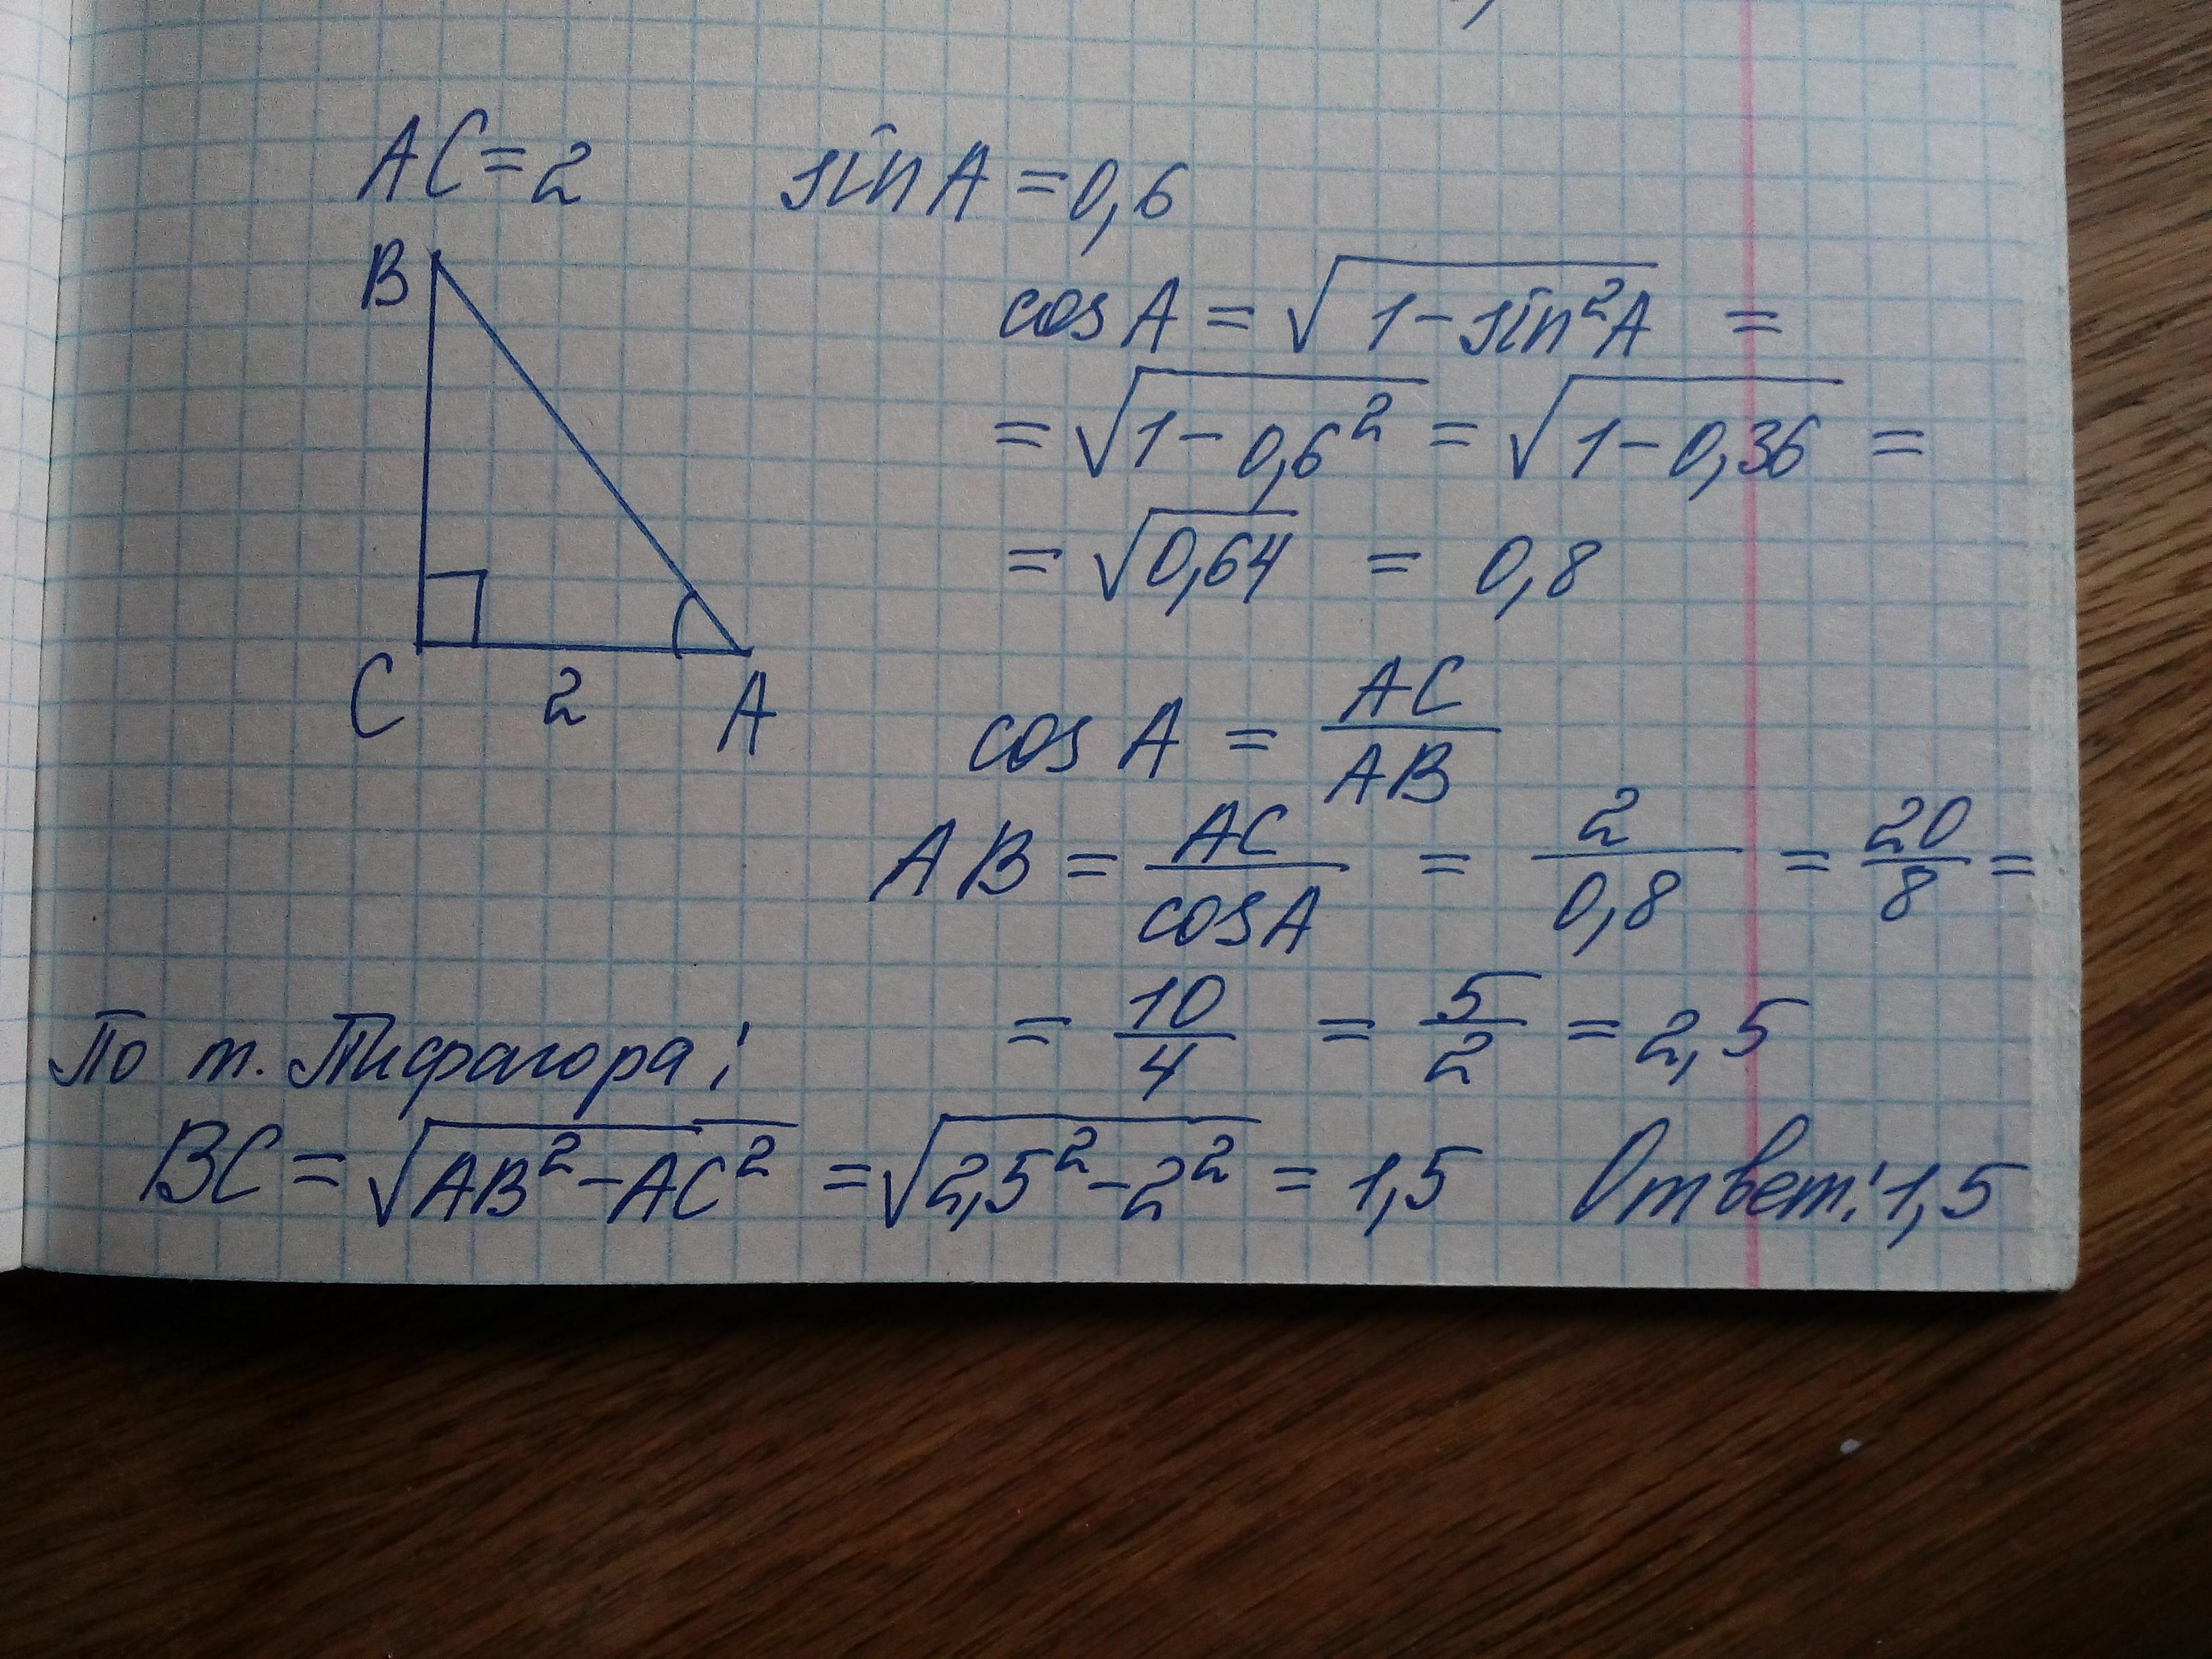 AC=2 sin A =0,6
B
cos A = √1-sin²A =
= √1-0,6² = √1-0,36 =
= √0,64 = 0,8
C 2 A
cos A = AC/AB
AB = AC/cosA = 2/0,8 = 20/8 =
= 10/4 = 5/2 = 2,5
По т. Пифагора:
BC = √AB²-AC² = √2,5²-2² = 1,5 Ответ: 1,5